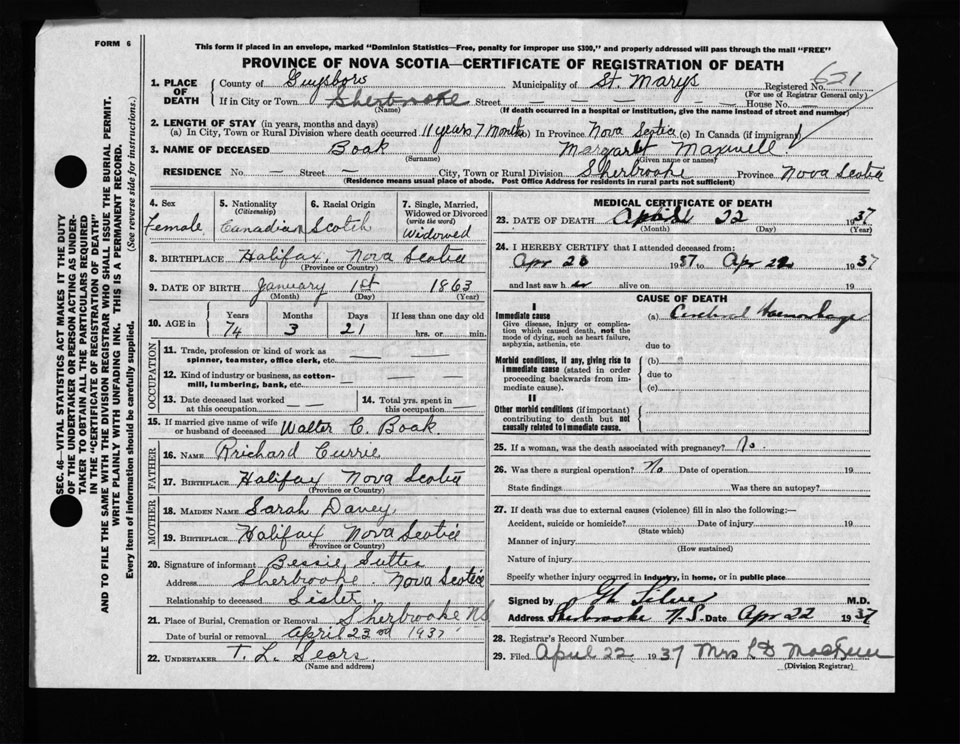 FORM 6
This form if placed in an envelope, marked "Dominion Statistics—Free, penalty for improper use $300," and properly addressed will pass through the mail "FREE"
PROVINCE OF NOVA SCOTIA—CERTIFICATE OF REGISTRATION OF DEATH
1. PLACE OF DEATH
County of Guysboro Municipality of St. Marys Registered No. 621
(For use of Registrar General only)
If in City or Town Sherbrooke Street — — — — — House No. —
(Name) (If death occurred in a hospital or institution, give the name instead of street and number)
2. LENGTH OF STAY (in years, months and days)
(a) In City, Town or Rural Division where death occurred 11 years 7 months (b) In Province Nova Scotia (c) In Canada (if immigrant)
3. NAME OF DECEASED Boak Margaret Maxwell
(Surname) (Given name or names)
RESIDENCE No. — Street — City, Town or Rural Division Sherbrooke Province Nova Scotia
(Residence means usual place of abode. Post Office Address for residents in rural parts not sufficient)
4. Sex
Female
5. Nationality
(Citizenship)
Canadian
6. Racial Origin
Scotch
7. Single, Married, Widowed or Divorced
(write the word)
Widowed
8. BIRTHPLACE Halifax, Nova Scotia
(Province or Country)
9. DATE OF BIRTH January 1st 1863
(Month) (Day) (Year)
10. AGE in
Years Months Days If less than one day old
74 3 21 hrs. or min.
OCCUPATION
11. Trade, profession or kind of work as spinner, teamster, office clerk, etc. — —
12. Kind of industry or business, as cotton-mill, lumbering, bank, etc. — —
13. Date deceased last worked at this occupation — —
14. Total yrs. spent in this occupation — —
15. If married give name of wife or husband of deceased Walter C. Boak.
FATHER
16. NAME Rrichard Currie
17. BIRTHPLACE Halifax Nova Scotia
(Province or Country)
MOTHER
18. MAIDEN NAME Sarah Davey,
19. BIRTHPLACE Halifax Nova Scotia
(Province or Country)
20. Signature of informant Bessie
Address Sherbrooke. Nova Scotia
Relationship to deceased Sister.
21. Place of Burial, Cremation or Removal Sherbrooke NS
Date of burial or removal April 23rd 1937
22. UNDERTAKER T. L. Sears.
(Name and address)
MEDICAL CERTIFICATE OF DEATH
23. DATE OF DEATH April 22 1937
(Month) (Day) (Year)
24. I HEREBY CERTIFY that I attended deceased from:
Apr 20 1937 to Apr 22 1937
and last saw her alive on 19
CAUSE OF DEATH
I
Immediate cause
Give disease, injury or complication which caused death, not the mode of dying, such as heart failure, asphyxia, asthenia, etc.
(a) Cerebral Haemorhage
due to
Morbid conditions, if any, giving rise to immediate cause (stated in order proceeding backwards from immediate cause).
(b)
due to
(c)
II
Other morbid conditions (if important) contributing to death but not causally related to immediate cause.
25. If a woman, was the death associated with pregnancy? No.
26. Was there a surgical operation? No Date of operation 19
State findings Was there an autopsy?
27. If death was due to external causes (violence) fill in also the following:—
Accident, suicide or homicide? Date of injury 19
(State which)
Manner of injury
(How sustained)
Nature of injury
Specify whether injury occurred in industry, in home, or in public place
Signed by M.D.
Address Sherbrooke N.S. Date Apr 22 1937
28. Registrar's Record Number
29. Filed April 22 1937 Mrs
(Division Registrar)
SEC. 46—VITAL STATISTICS ACT MAKES IT THE DUTY
OF THE UNDERTAKER OR PERSON ACTING AS UNDER-
TAKER TO OBTAIN ALL THE PARTICULARS REQUIRED
IN THE "CERTIFICATE OF REGISTRATION OF DEATH"
AND TO FILE THE SAME WITH THE DIVISION REGISTRAR WHO SHALL ISSUE THE BURIAL PERMIT.
WRITE PLAINLY WITH UNFADING INK. THIS IS A PERMANENT RECORD.
Every item of information should be carefully supplied. (See reverse side for instructions.)